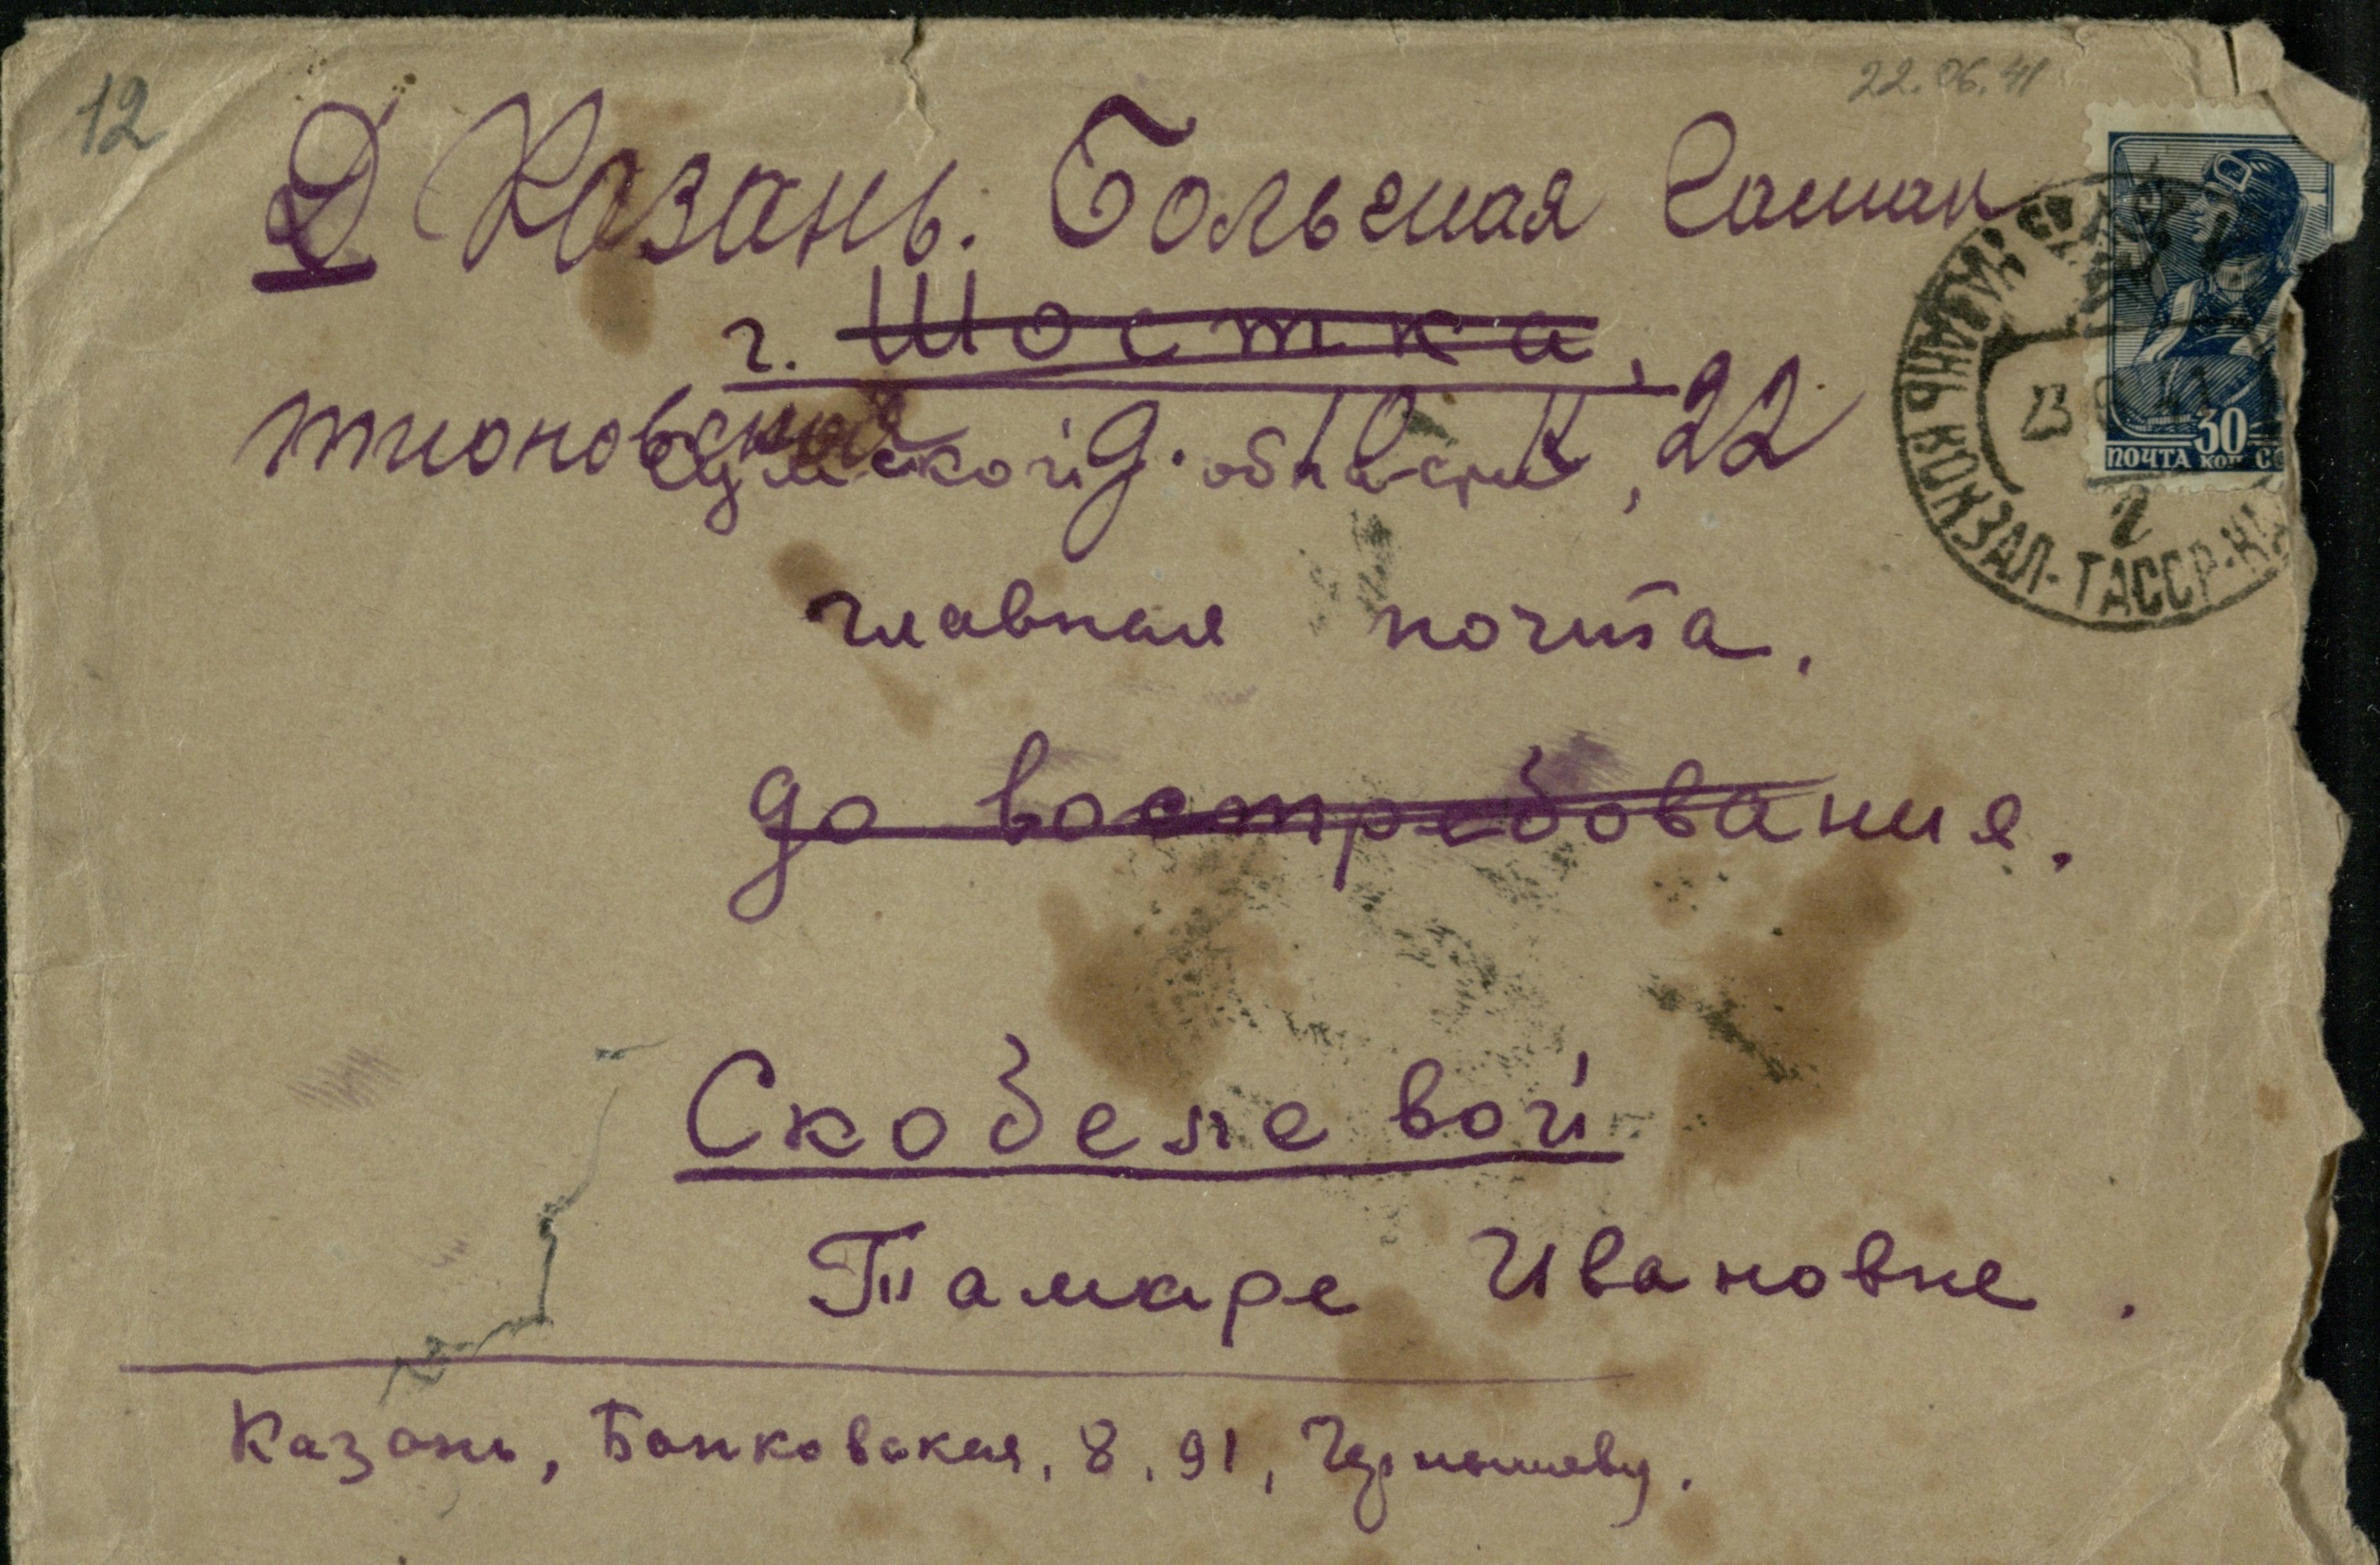 12
22.06.41
Д Казань. Большая Сими
г. Шостка,
тионовская д. 10 к 22
Сумской области,
главная почта.
до востребования.
Скобелевой
Тамаре Ивановне.
Казань, Банковская, 8, 91, Чернышеву.
30
ПОЧТА КОП. СС
23
КАЗАНЬ ВОКЗАЛ-ТАССР-КАЗАНЬ
2